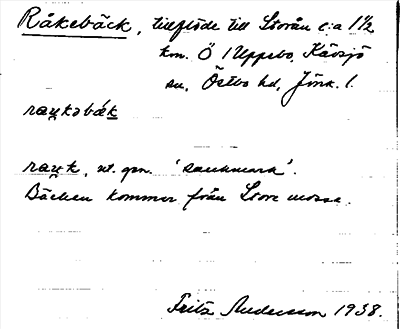 Råkebäck, tillflöde till Storån c:a 1½
km. Ö Uppebo, Kävsjö
sn, Östbo hd, Jönk. l.
rau̯kəbæk
rau̯k, ut. gm. 'sankmark'.
Bäcken kommer från Store mosse.
Fritz Andersson 1938.